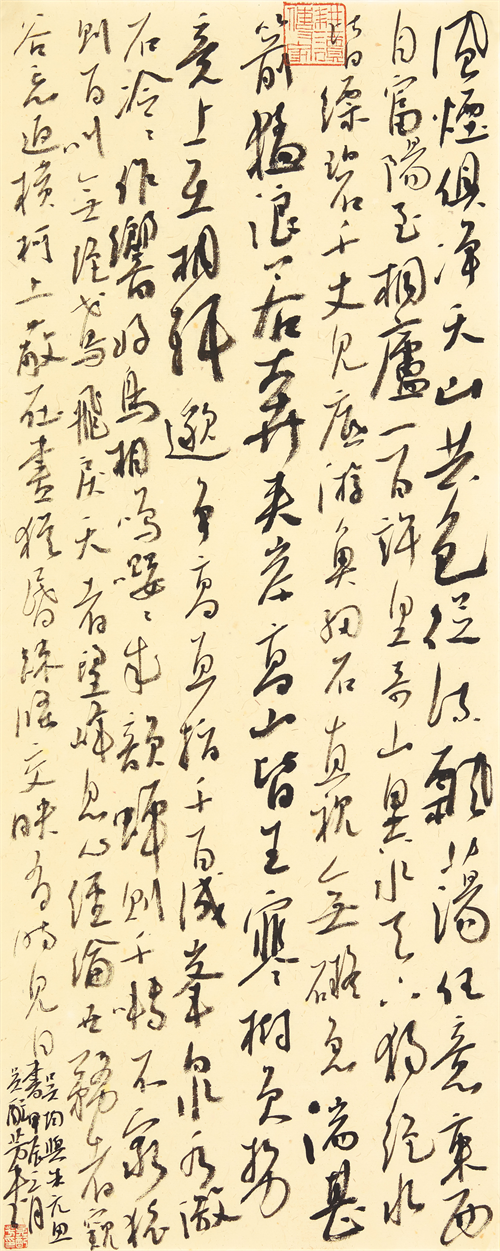 風煙俱淨天山共色從流飄蕩任意東西
自富陽至桐廬一百許里奇山異水天下獨絕水
皆縹碧千丈見底游魚細石直視無礙急湍甚
箭猛浪若奔夾岸高山皆生寒樹負勢
競上互相軒邈爭高直指千百成峯泉水激
石泠〻作響好鳥相鳴嚶〻成韻蟬則千轉不窮猿
則百叫無絕鳶飛戾天者望峰息心經綸世務者窺
谷忘返橫柯上蔽在晝猶昏疎條交映有時見日
吳均與朱元思
書甲辰月